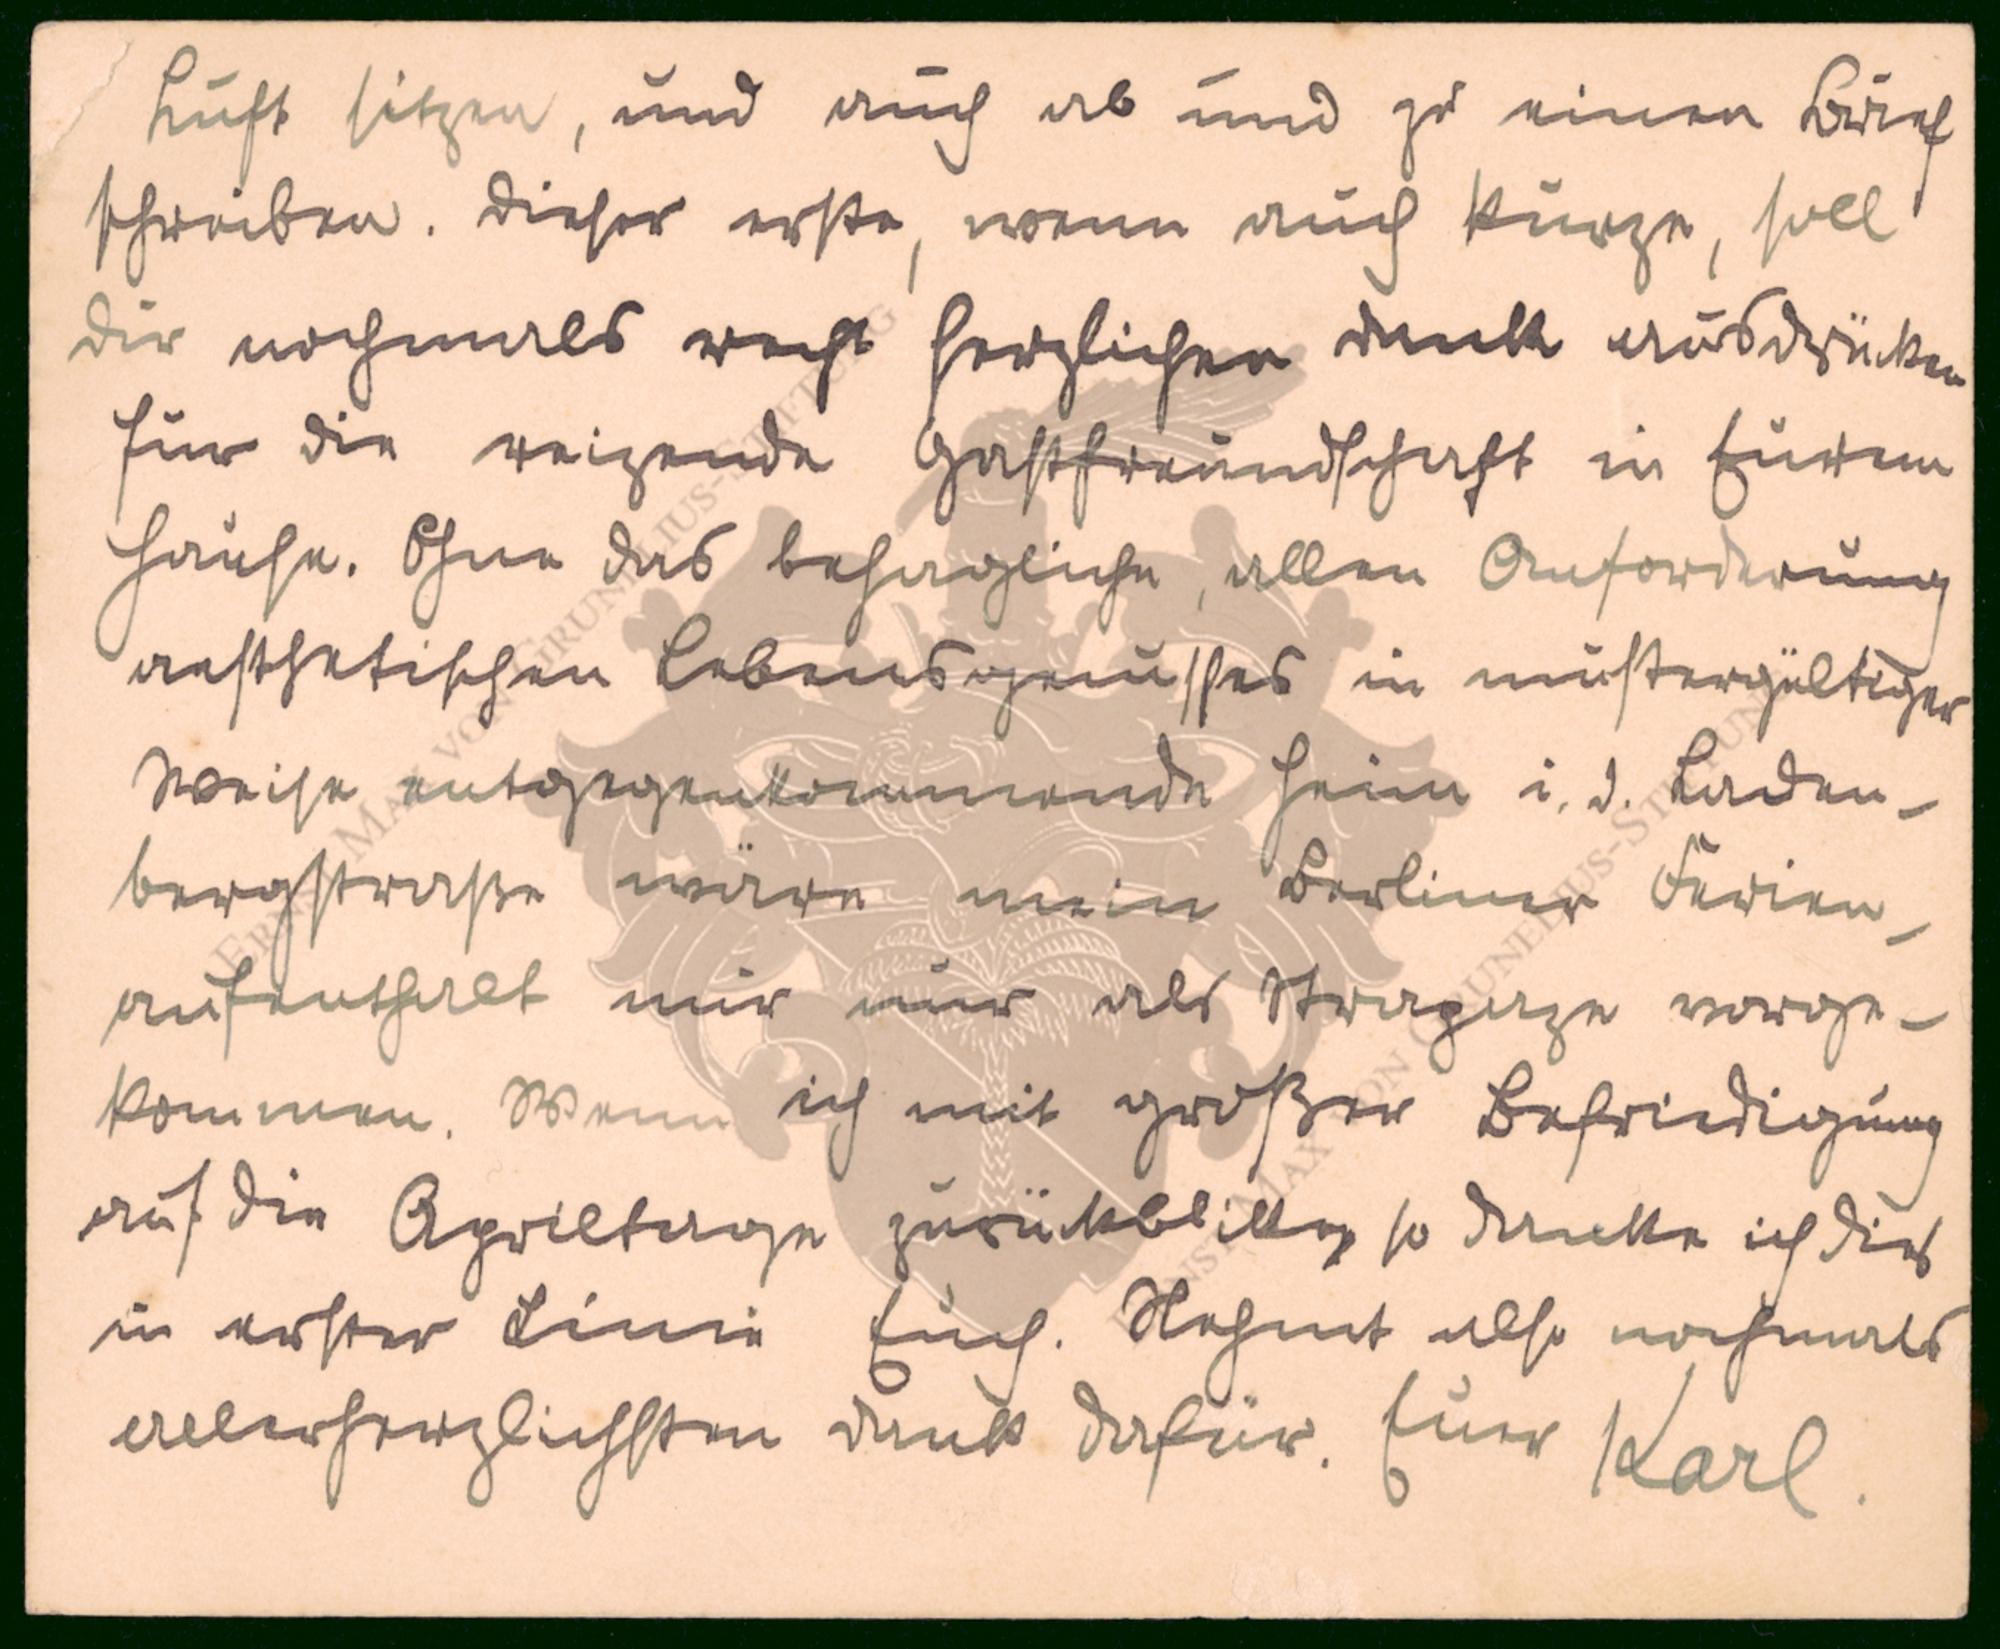 Luft sitzen, und auch ab und zu einen Brief
schreiben. Dieser erste, wenn auch kurze, soll
Dir nochmals recht herzlichen Dank ausdrücken
für die reizende Gastfreundschaft in Eurem
Hause. Ohne das behagliche, allen Anforderung
aesthetischen Lebensgenusses in mustergültiger
Weise entgegenkommende Heim i. d. Laden-
bergstraße wäre mein Berliner Ferien-
aufenthalt mir nur als Strapaze vorge-
kommen. Wenn ich mit großer Befriedigung
auf die Apriltage zurückblicke, so danke ich dies
in erster Linie Euch. Nehmt also nochmals
allerherzlichsten Dank dafür. Euer Karl.
ERNST MAX VON GRUNELIUS-STIFTUNG
ERNST MAX VON GRUNELIUS-STIFTUNG